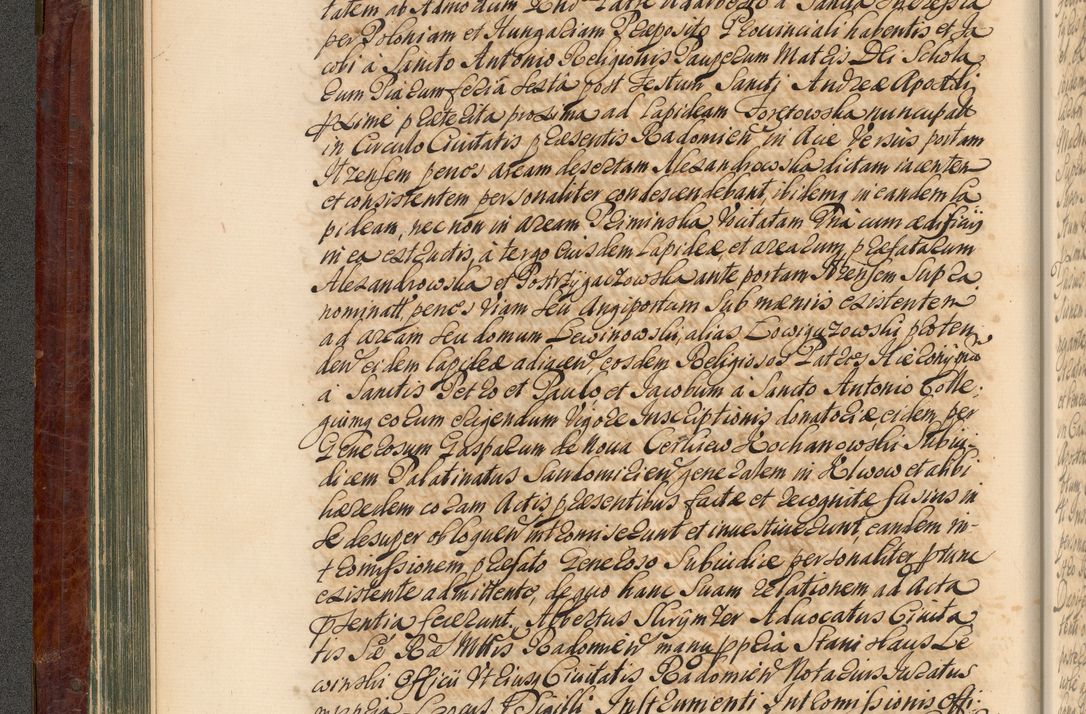 tatem ab Admodum Rnd Patre a Sancta
per Poloniam et Hungariam Præposito Provinciali habentis et Ja
cobi a Sancto Antonio Religionis Pauperum Matris Dei Schola
rum Piarum feria sexta post Festum Sancti Andreæ Apostoli
pxime præterita proxima ad Lapideam nuncupatt
in Circulo Civitatis præsentis Radomień in Acie versus portam
Itzensem penes aream desertam Alexandrowska dictam iacentem
et consistentem personaliter condescendebant, ibidemq in eandem la
pideam, nec non in aream Piiminska vocitatam Una cum ædificijs
in ea exstructis, à tergo eiusdem Lapideæ et arearum, præfatarum
Alexandrowska et Postrzygaczowska ante portam Itzensem Supra
nominatt, penes Viam seu Angiportum Sub mænijs existentem
ad aream seu domum Lewinowski, alias proten
den, eidem lapideæ adiacen, eosdem Religiosos Patres Hieronymū
a Sanctis Petro et Paulo et Jacobum a Sancto Antonio Colle-
giumq eorum erigendum Vigore Inscriptionis donatoriæ, eidem per
Generosum Gasparum de Noua Cerekiew Kochanowski Subiu-
dicem Palatinatus Sandomirien, generalem in Elwow et alibi
hæredem coram Actis præsentibus factæ et recognitæ fusius in
se desuper obloquen intromiserunt et inuestiuerunt, eandem in-
tromissionem præfato Generoso Subiudice personaliter ptunc
existente admittente, de quo hanc suam relationem ad Acta
præsentia fecerunt. Albertus Skrynzer Aduocatus Ciuita
tis Sæ Ræ Mttis Radomień manu ppria Stanislaus Le
winski Officii Utriusq Ciuitatis Radomień Notarius Juratus
mppria Locus Sigilli Instrumenti Intromissionis offi: